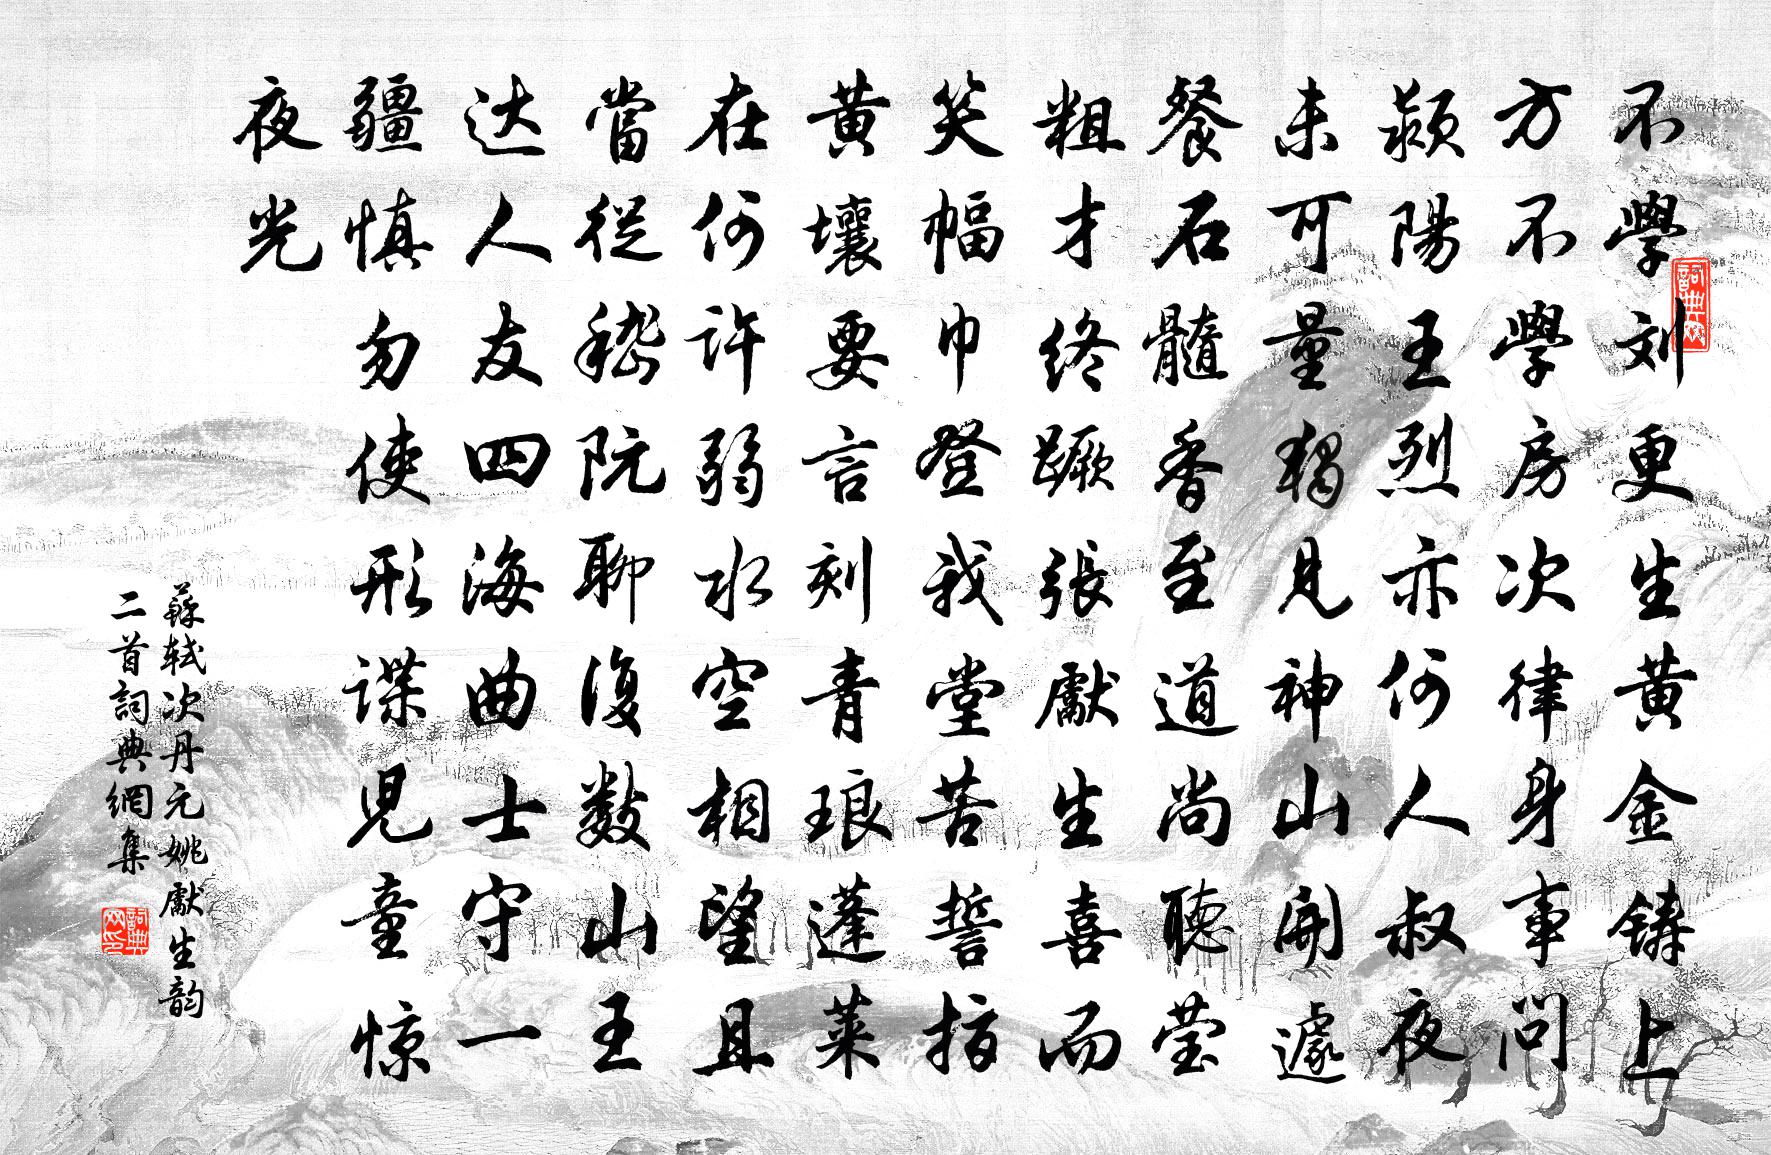 不學刘更生黄金鋳上
方不學房次律身事問
颍陽王烈亦何人叔夜
未可量獨見神山開遽
餐石髓香至道尚聴莹
粗才終蹶張獻生喜而
笑幅巾登我堂苦誓指
黄壤要言刻青琅蓬莱
在何許弱水空相望且
當從嵇阮聊復数山王
达人友四海曲士守一
疆慎勿使形谍児童惊
夜光
蘇轼次丹元姚獻生韵
二首詞典網集
詞典网
詞典网印